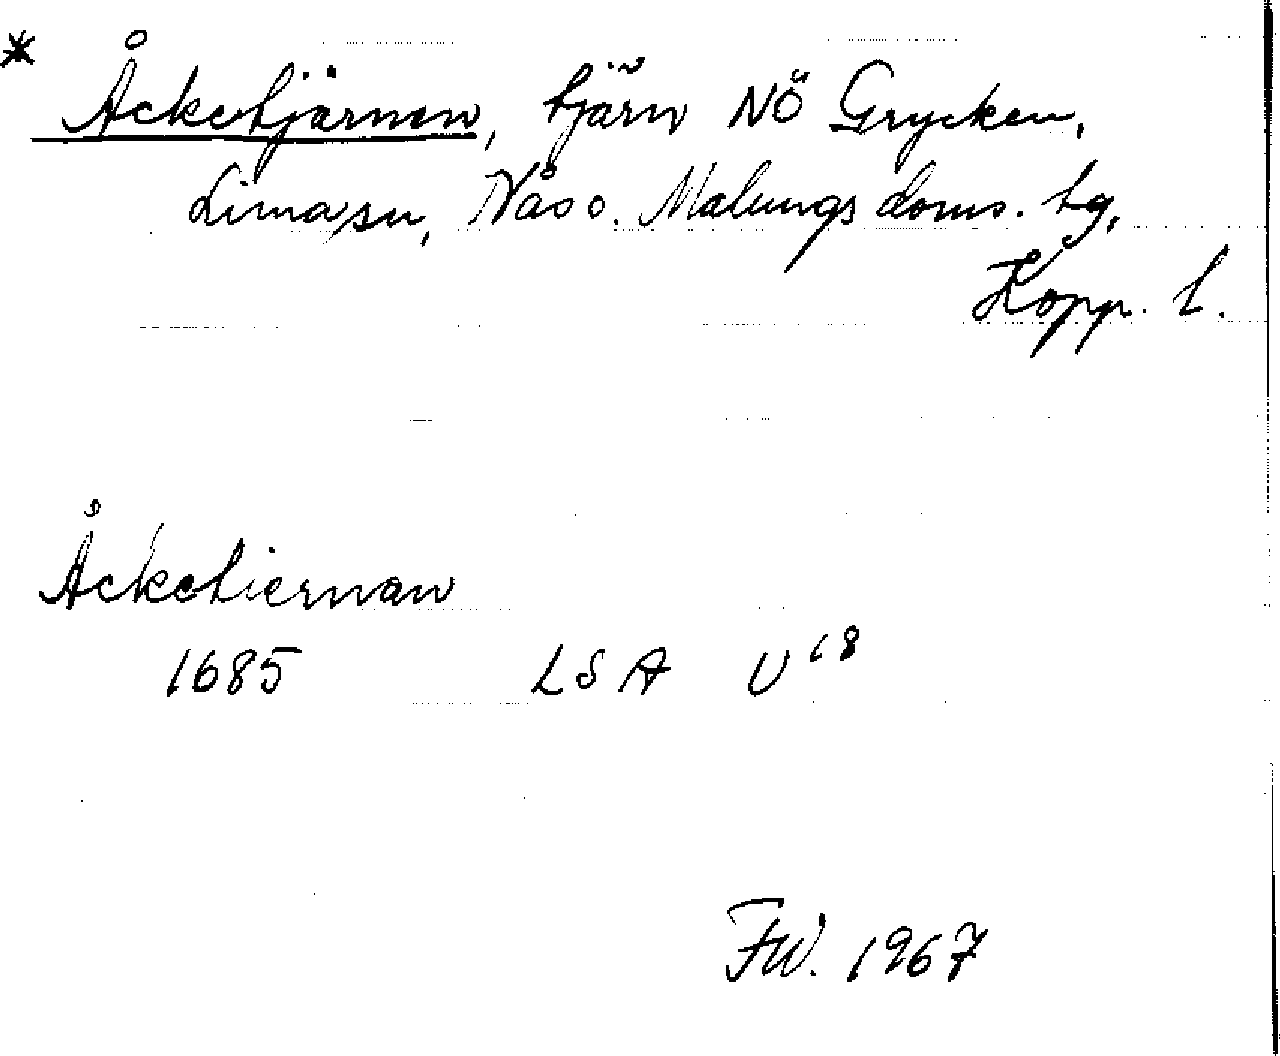 * Åcketjärnen, tjärn NÖ Grycken,
Lima sn, Nås o. Malungs doms. tg,
Kopp. l.
Åcketiernan
1685 LSA U18
FW. 1967